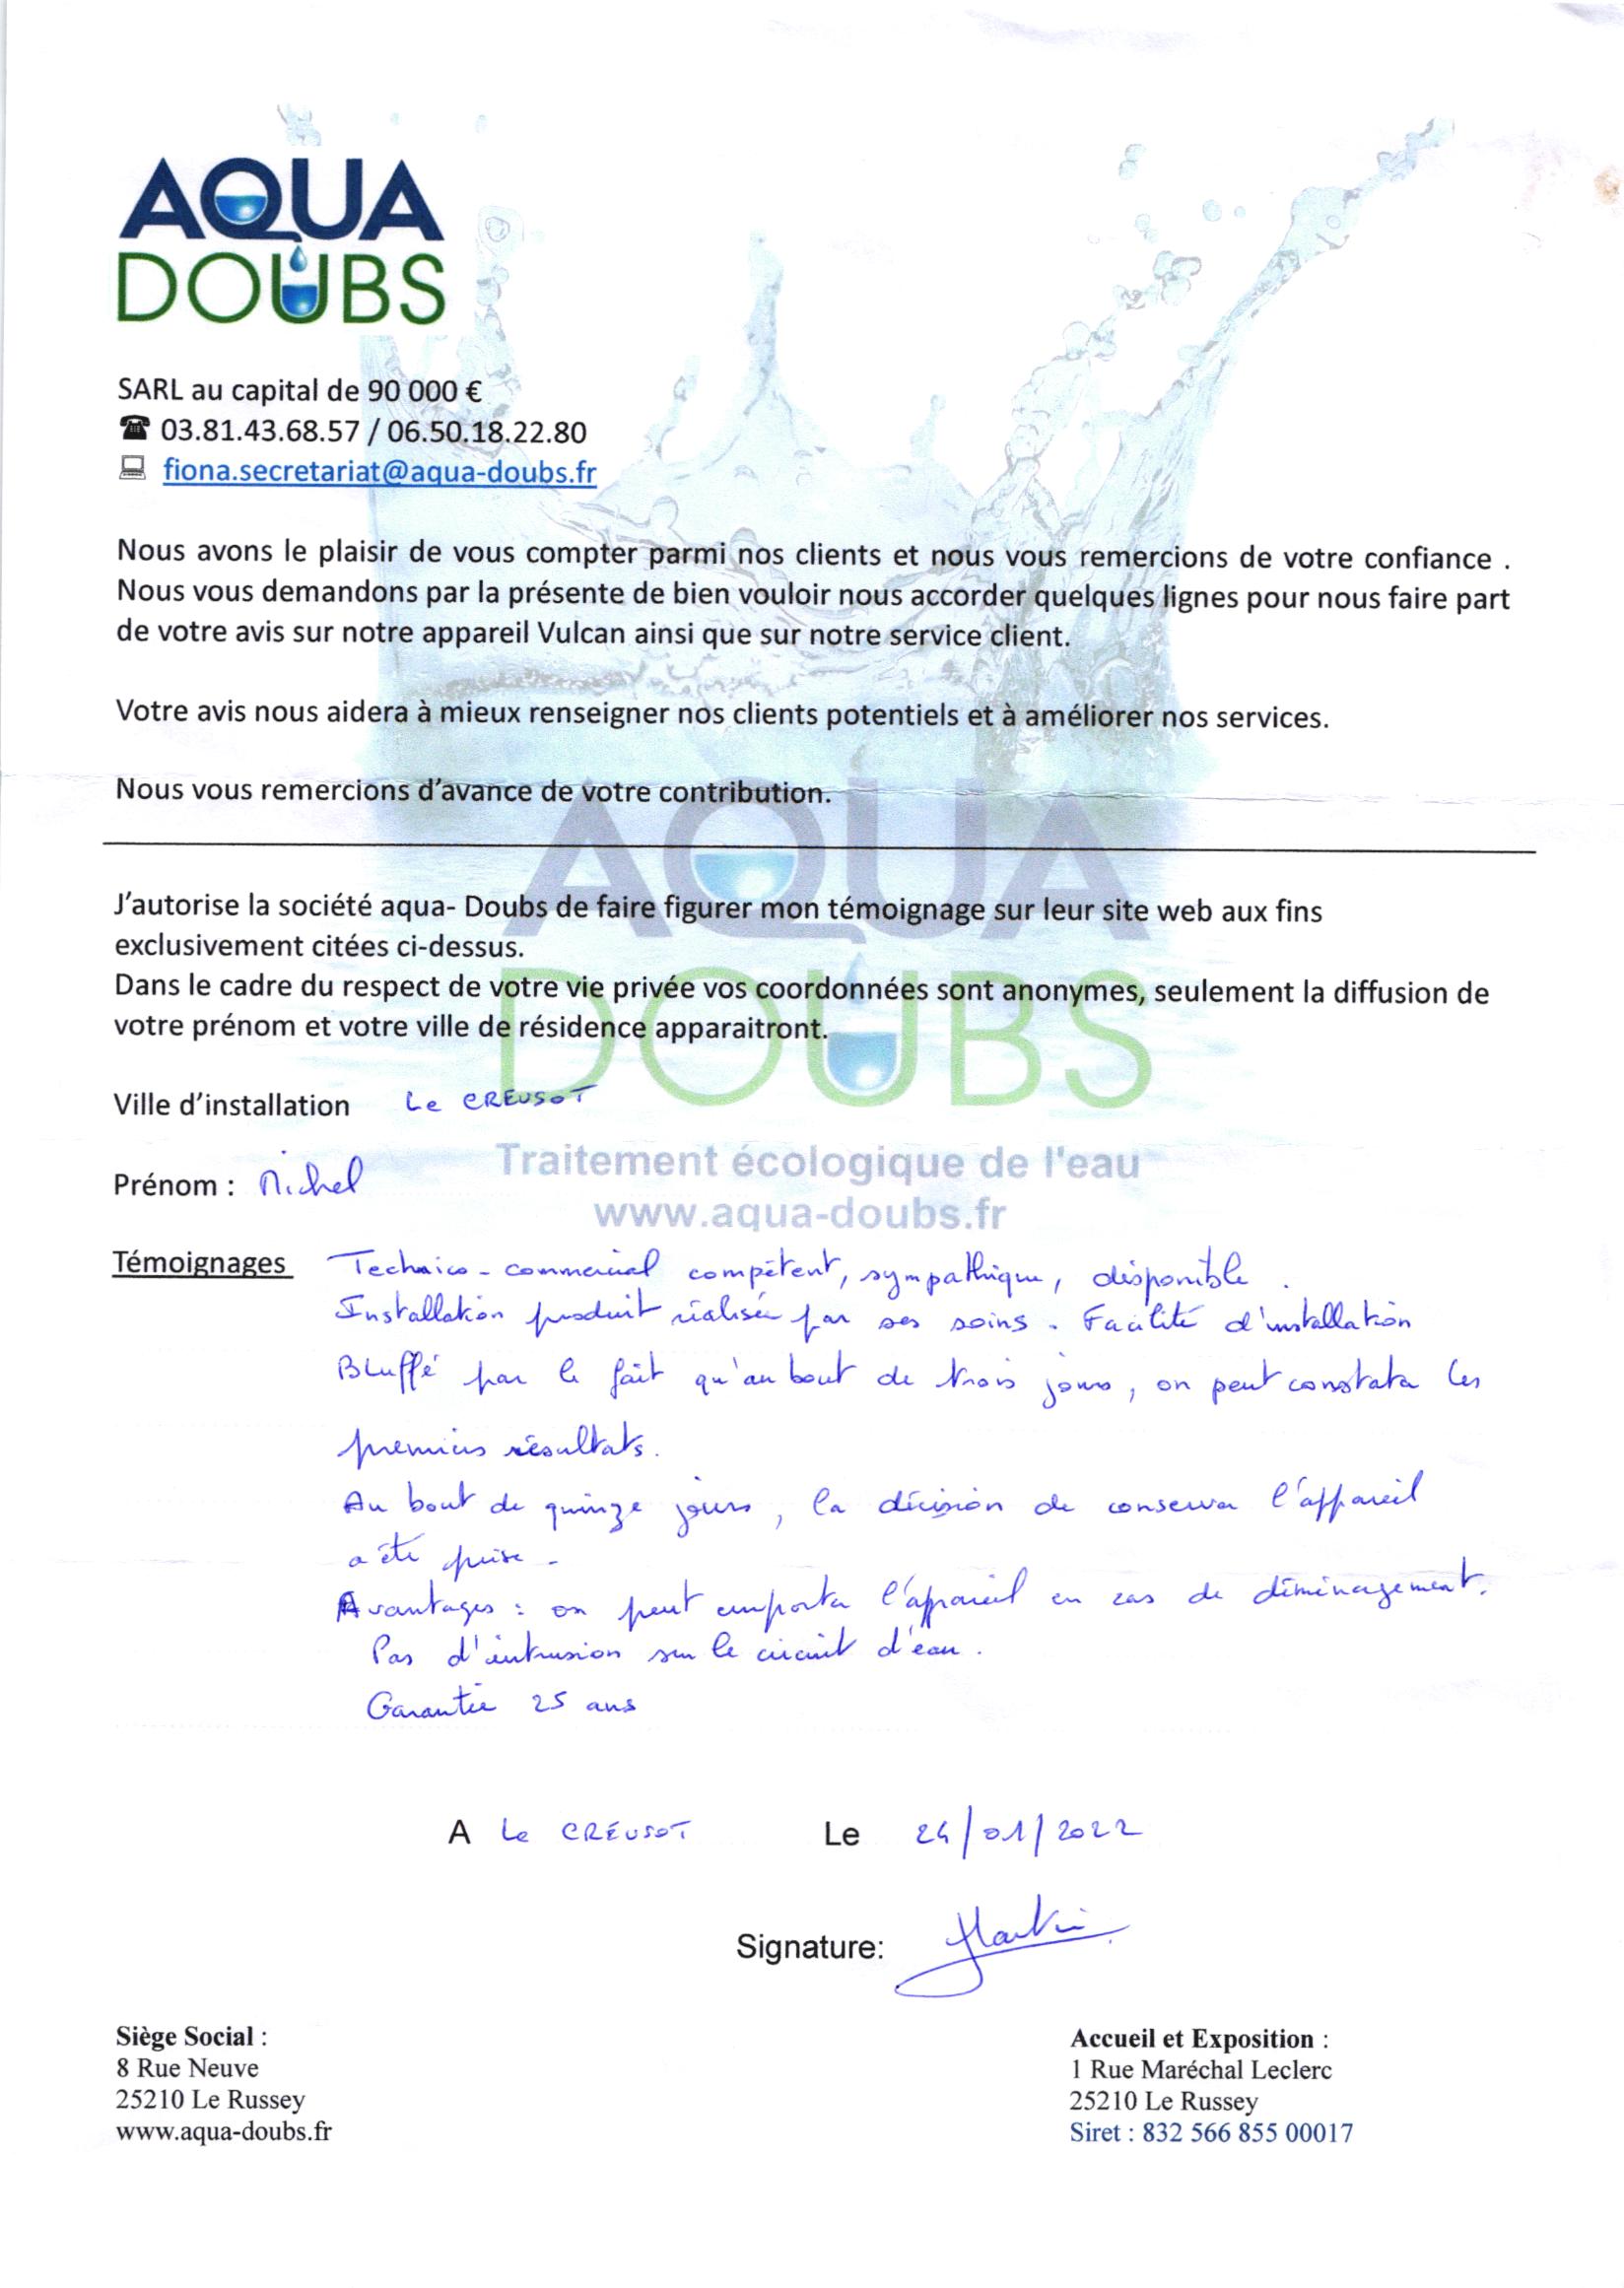 AQUA
DOUBS
SARL au capital de 90 000 €
03.81.43.68.57 / 06.50.18.22.80
fiona.secretariat@aqua-doubs.fr
Nous avons le plaisir de vous compter parmi nos clients et nous vous remercions de votre confiance .
Nous vous demandons par la présente de bien vouloir nous accorder quelques lignes pour nous faire part
de votre avis sur notre appareil Vulcan ainsi que sur notre service client.
Votre avis nous aidera à mieux renseigner nos clients potentiels et à améliorer nos services.
Nous vous remercions d’avance de votre contribution.
AQUA
DOUBS
J’autorise la société aqua- Doubs de faire figurer mon témoignage sur leur site web aux fins
exclusivement citées ci-dessus.
Dans le cadre du respect de votre vie privée vos coordonnées sont anonymes, seulement la diffusion de
votre prénom et votre ville de résidence apparaitront.
Ville d’installation Le CREUSOT
Traitement écologique de l'eau
Prénom : Michel
www.aqua-doubs.fr
Témoignages Technico-commercial compétent, sympathique, disponible.
Installation produit réalisée par ses soins. Facilité d'installation
Bluffé par le fait qu'au bout de trois jours, on peut constater les
premiers résultats.
Au bout de quinze jours, la décision de conserver l'appareil
a été prise.
Avantages : on peut emporter l'appareil en cas de déménagement.
Pas d'intrusion sur le circuit d'eau.
Garantie 25 ans
A Le CREUSOT Le 24/01/2022
Signature:
Siège Social :
8 Rue Neuve
25210 Le Russey
www.aqua-doubs.fr
Accueil et Exposition :
1 Rue Maréchal Leclerc
25210 Le Russey
Siret : 832 566 855 00017